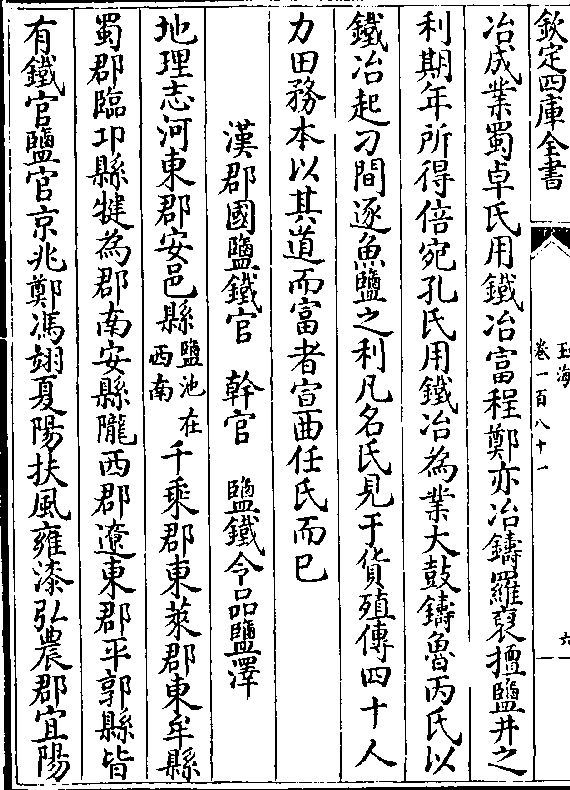 欽定四庫全書
玉海
卷一百八十一
六
冶成業蜀卓氏用鐵冶富程鄭亦冶鑄羅裒擅鹽井之
利期年所得倍宛孔氏用鐵冶為業大鼓鑄魯丙氏以
鐵冶起刁間逐魚鹽之利凡名氏見于貨殖傳四十人
力田務本以其道而富者宣曲任氏而已
漢郡國鹽鐵官　幹官　鹽鐵令品鹽澤
地理志河東郡安邑縣鹽池在西南千乘郡東萊郡東牟縣
蜀郡臨邛縣犍為郡南安縣隴西郡遼東郡平郭縣皆
有鐵官鹽官京兆鄭馮翊夏陽扶風雍漆弘農郡宜陽